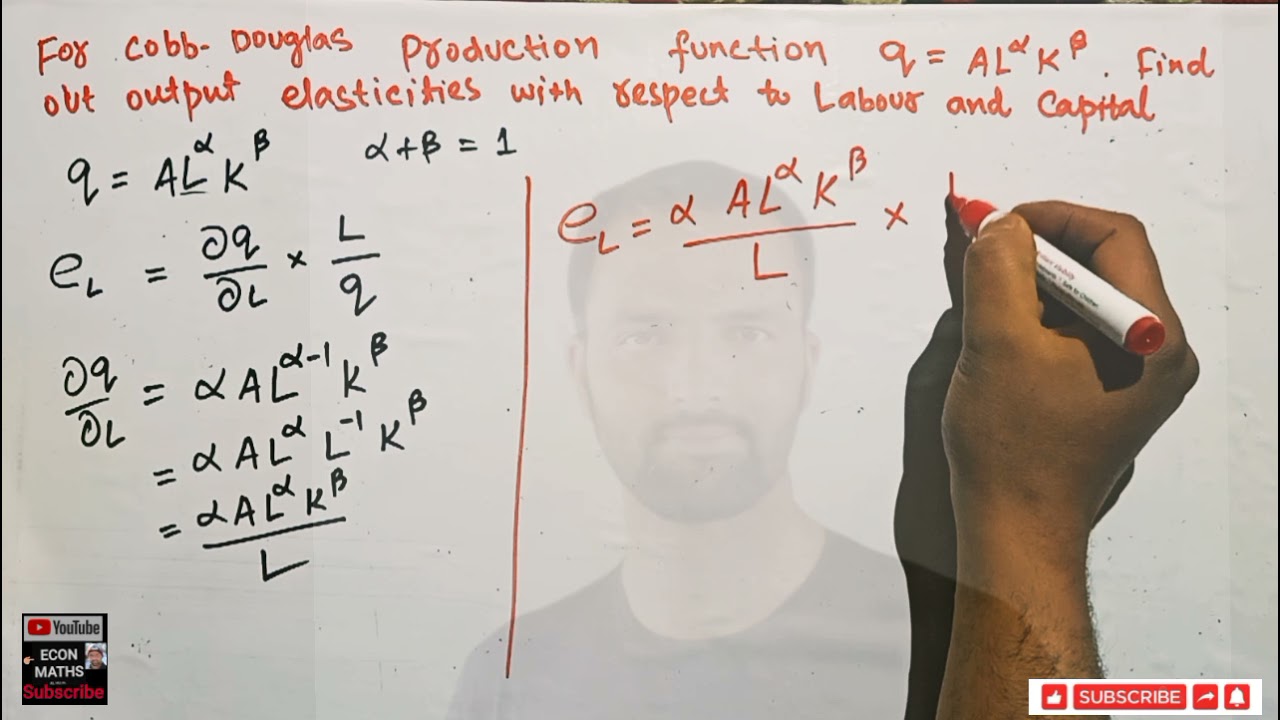 For Cobb-Douglas Production function q = AL^α K^β. Find
out output elasticities with respect to Labour and Capital
q = AL^α K^β    α+β = 1
e_L = ∂q/∂L × L/q
∂q/∂L = α AL^(α-1) K^β
= α AL^α L^(-1) K^β
= αAL^α K^β / L
e_L = α AL^α K^β / L ×
YouTube
ECON
MATHS
Subscribe
SUBSCRIBE